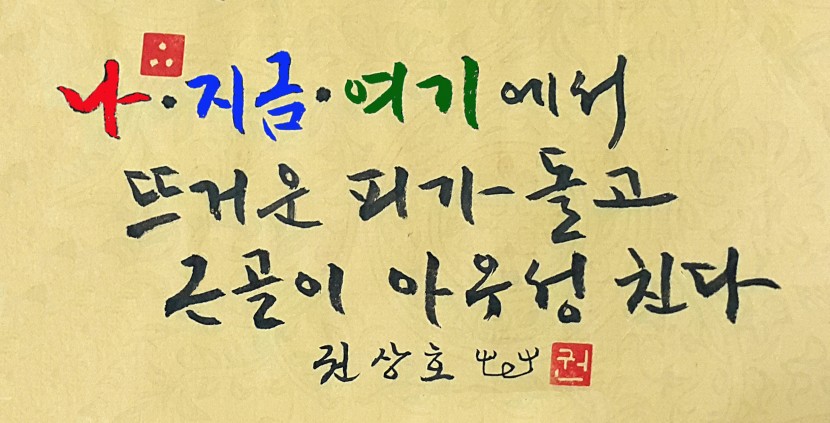 나·지금·여기에서
뜨거운 피가 돌고
근골이 아우성 친다
권상호
권